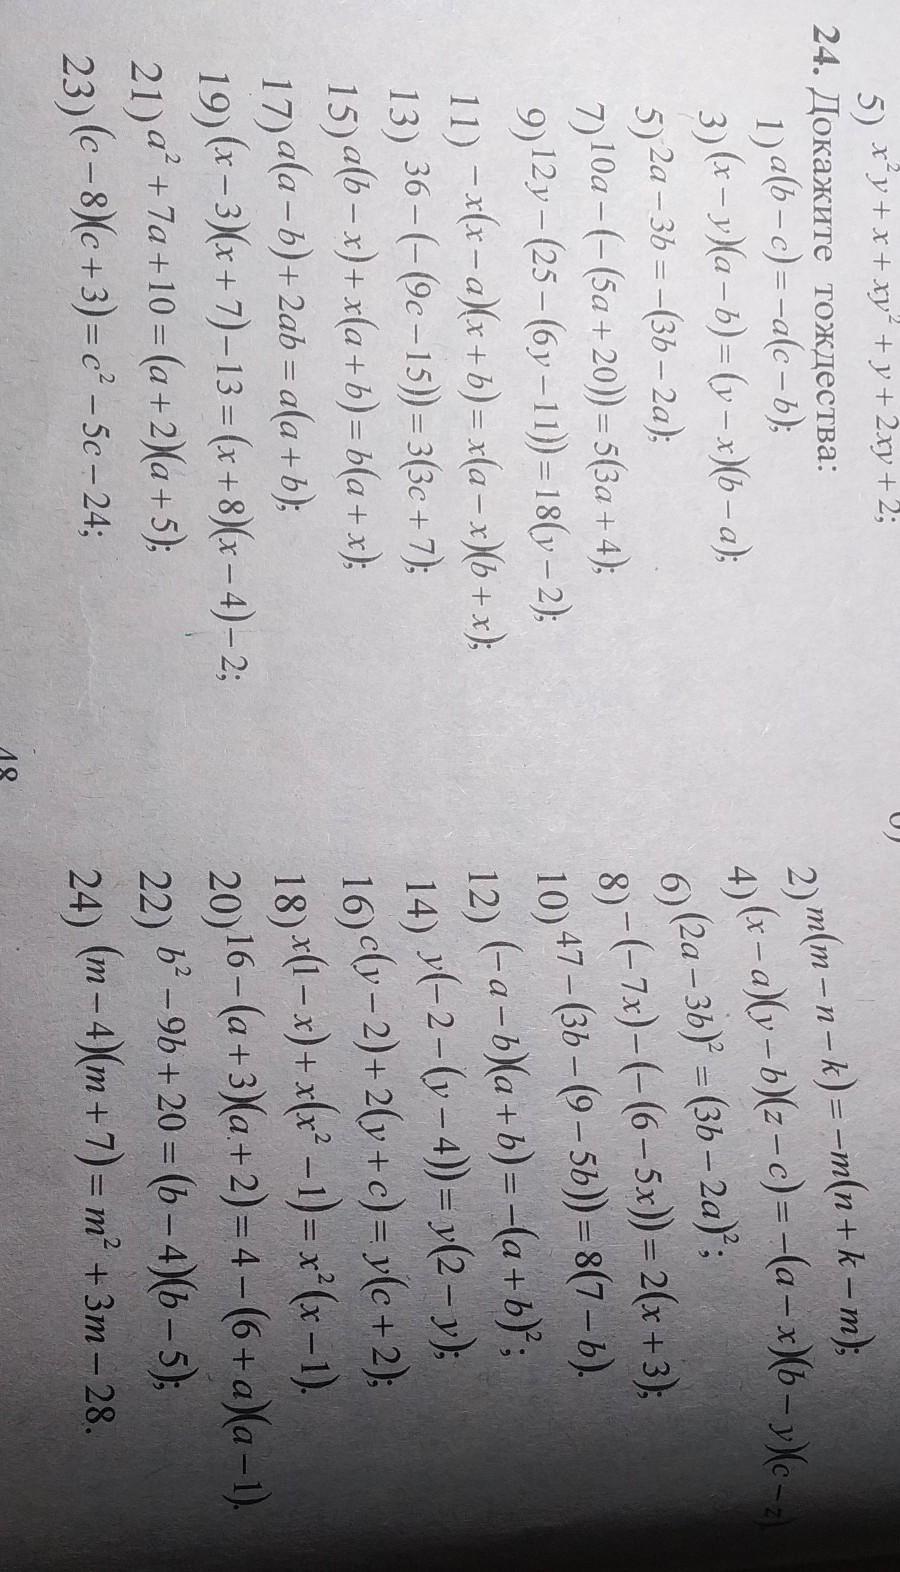 5) x²y + x + xy² + y + 2xy + 2;
24. Докажите тождества:
1) a(b − c) = −a(c − b);
2) m(m − n − k) = −m(n + k − m);
3) (x − y)(a − b) = (y − x)(b − a);
4) (x − a)(y − b)(z − c) = −(a − x)(b − y)(c − z)
5) 2a − 3b = −(3b − 2a);
6) (2a − 3b)² = (3b − 2a)²;
7) 10a − (−(5a + 20)) = 5(3a + 4);
8) −(−7x) − (−(6 − 5x)) = 2(x + 3);
9) 12y − (25 − (6y − 11)) = 18(y − 2);
10) 47 − (3b − (9 − 5b)) = 8(7 − b).
11) −x(x − a)(x + b) = x(a − x)(b + x);
12) (−a − b)(a + b) = −(a + b)²;
13) 36 − (−(9c − 15)) = 3(3c + 7);
14) y(−2 − (y − 4)) = y(2 − y);
15) a(b − x) + x(a + b) = b(a + x);
16) c(y − 2) + 2(y + c) = y(c + 2);
17) a(a − b) + 2ab = a(a + b);
18) x(1 − x) + x(x² − 1) = x²(x − 1).
19) (x − 3)(x + 7) − 13 = (x + 8)(x − 4) − 2;
20) 16 − (a + 3)(a + 2) = 4 − (6 + a)(a − 1).
21) a² + 7a + 10 = (a + 2)(a + 5);
22) b² − 9b + 20 = (b − 4)(b − 5);
23) (c − 8)(c + 3) = c² − 5c − 24;
24) (m − 4)(m + 7) = m² + 3m − 28.